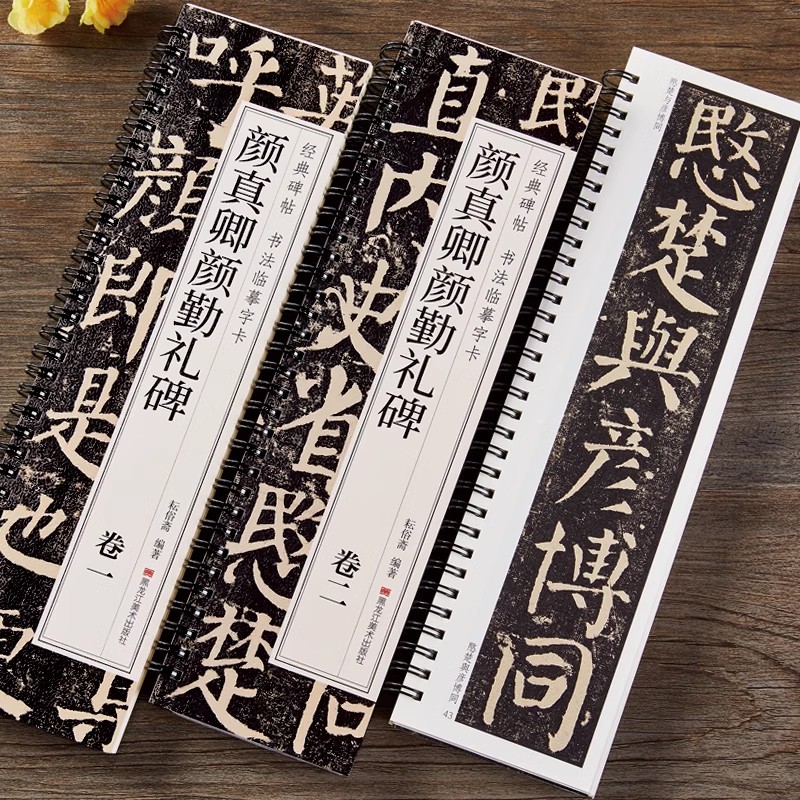 呼
顏
郎
是
也
经典碑帖 书法临摹字卡
颜真卿颜勤礼碑
卷一
耘俗斋 编著
黑龙江美术出版社
直内史省愍楚
同
经典碑帖 书法临摹字卡
颜真卿颜勤礼碑
卷二
耘俗斋 编著
黑龙江美术出版社
愍楚与彦博同
愍楚與彦博同
愍楚與彦博同
43